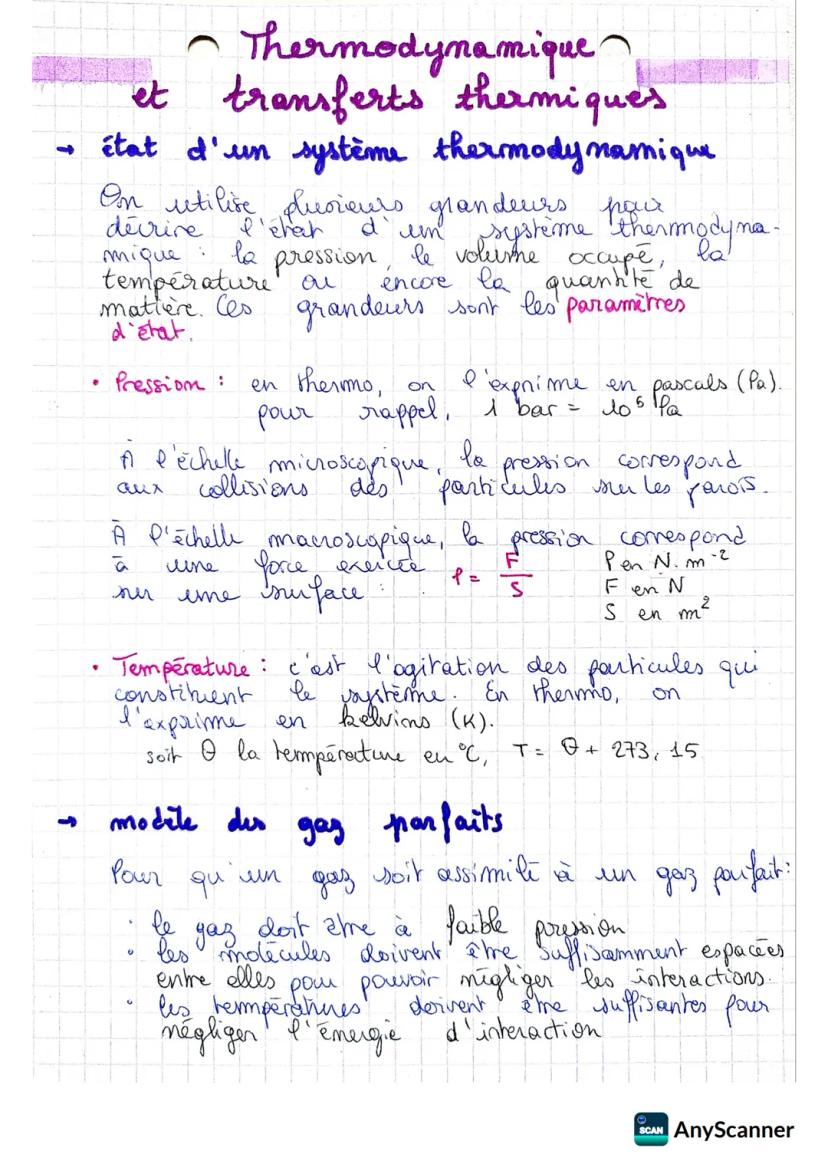 Thermodynamique
et transferts thermiques
→ état d'un système thermodynamique
On utilise plusieurs grandeurs pour
décrire l'état d'un système thermodyna-
mique : la pression, le volume occupé, la
température ou encore la quantité de
matière. Ces grandeurs sont les paramètres
d'état.
• Pression : en thermo, on l'exprime en pascals (Pa).
pour rappel, 1 bar = 10⁵ Pa
À l'échelle microscopique, la pression correspond
aux collisions des particules sur les parois.
À l'échelle macroscopique, la pression correspond
à une force exercée P = F/S P en N.m⁻²
sur une surface : F en N
S en m²
• Température : c'est l'agitation des particules qui
constituent le système. En thermo, on
l'exprime en kelvins (K).
soit θ la température en °C, T = θ + 273,15
→ modèle des gaz parfaits
Pour qu'un gaz soit assimilé à un gaz parfait :
• le gaz doit être à faible pression
• les molécules doivent être suffisamment espacées
entre elles pour pouvoir négliger les interactions.
• les températures doivent être suffisantes pour
négliger l'énergie d'interaction
SCAN AnyScanner